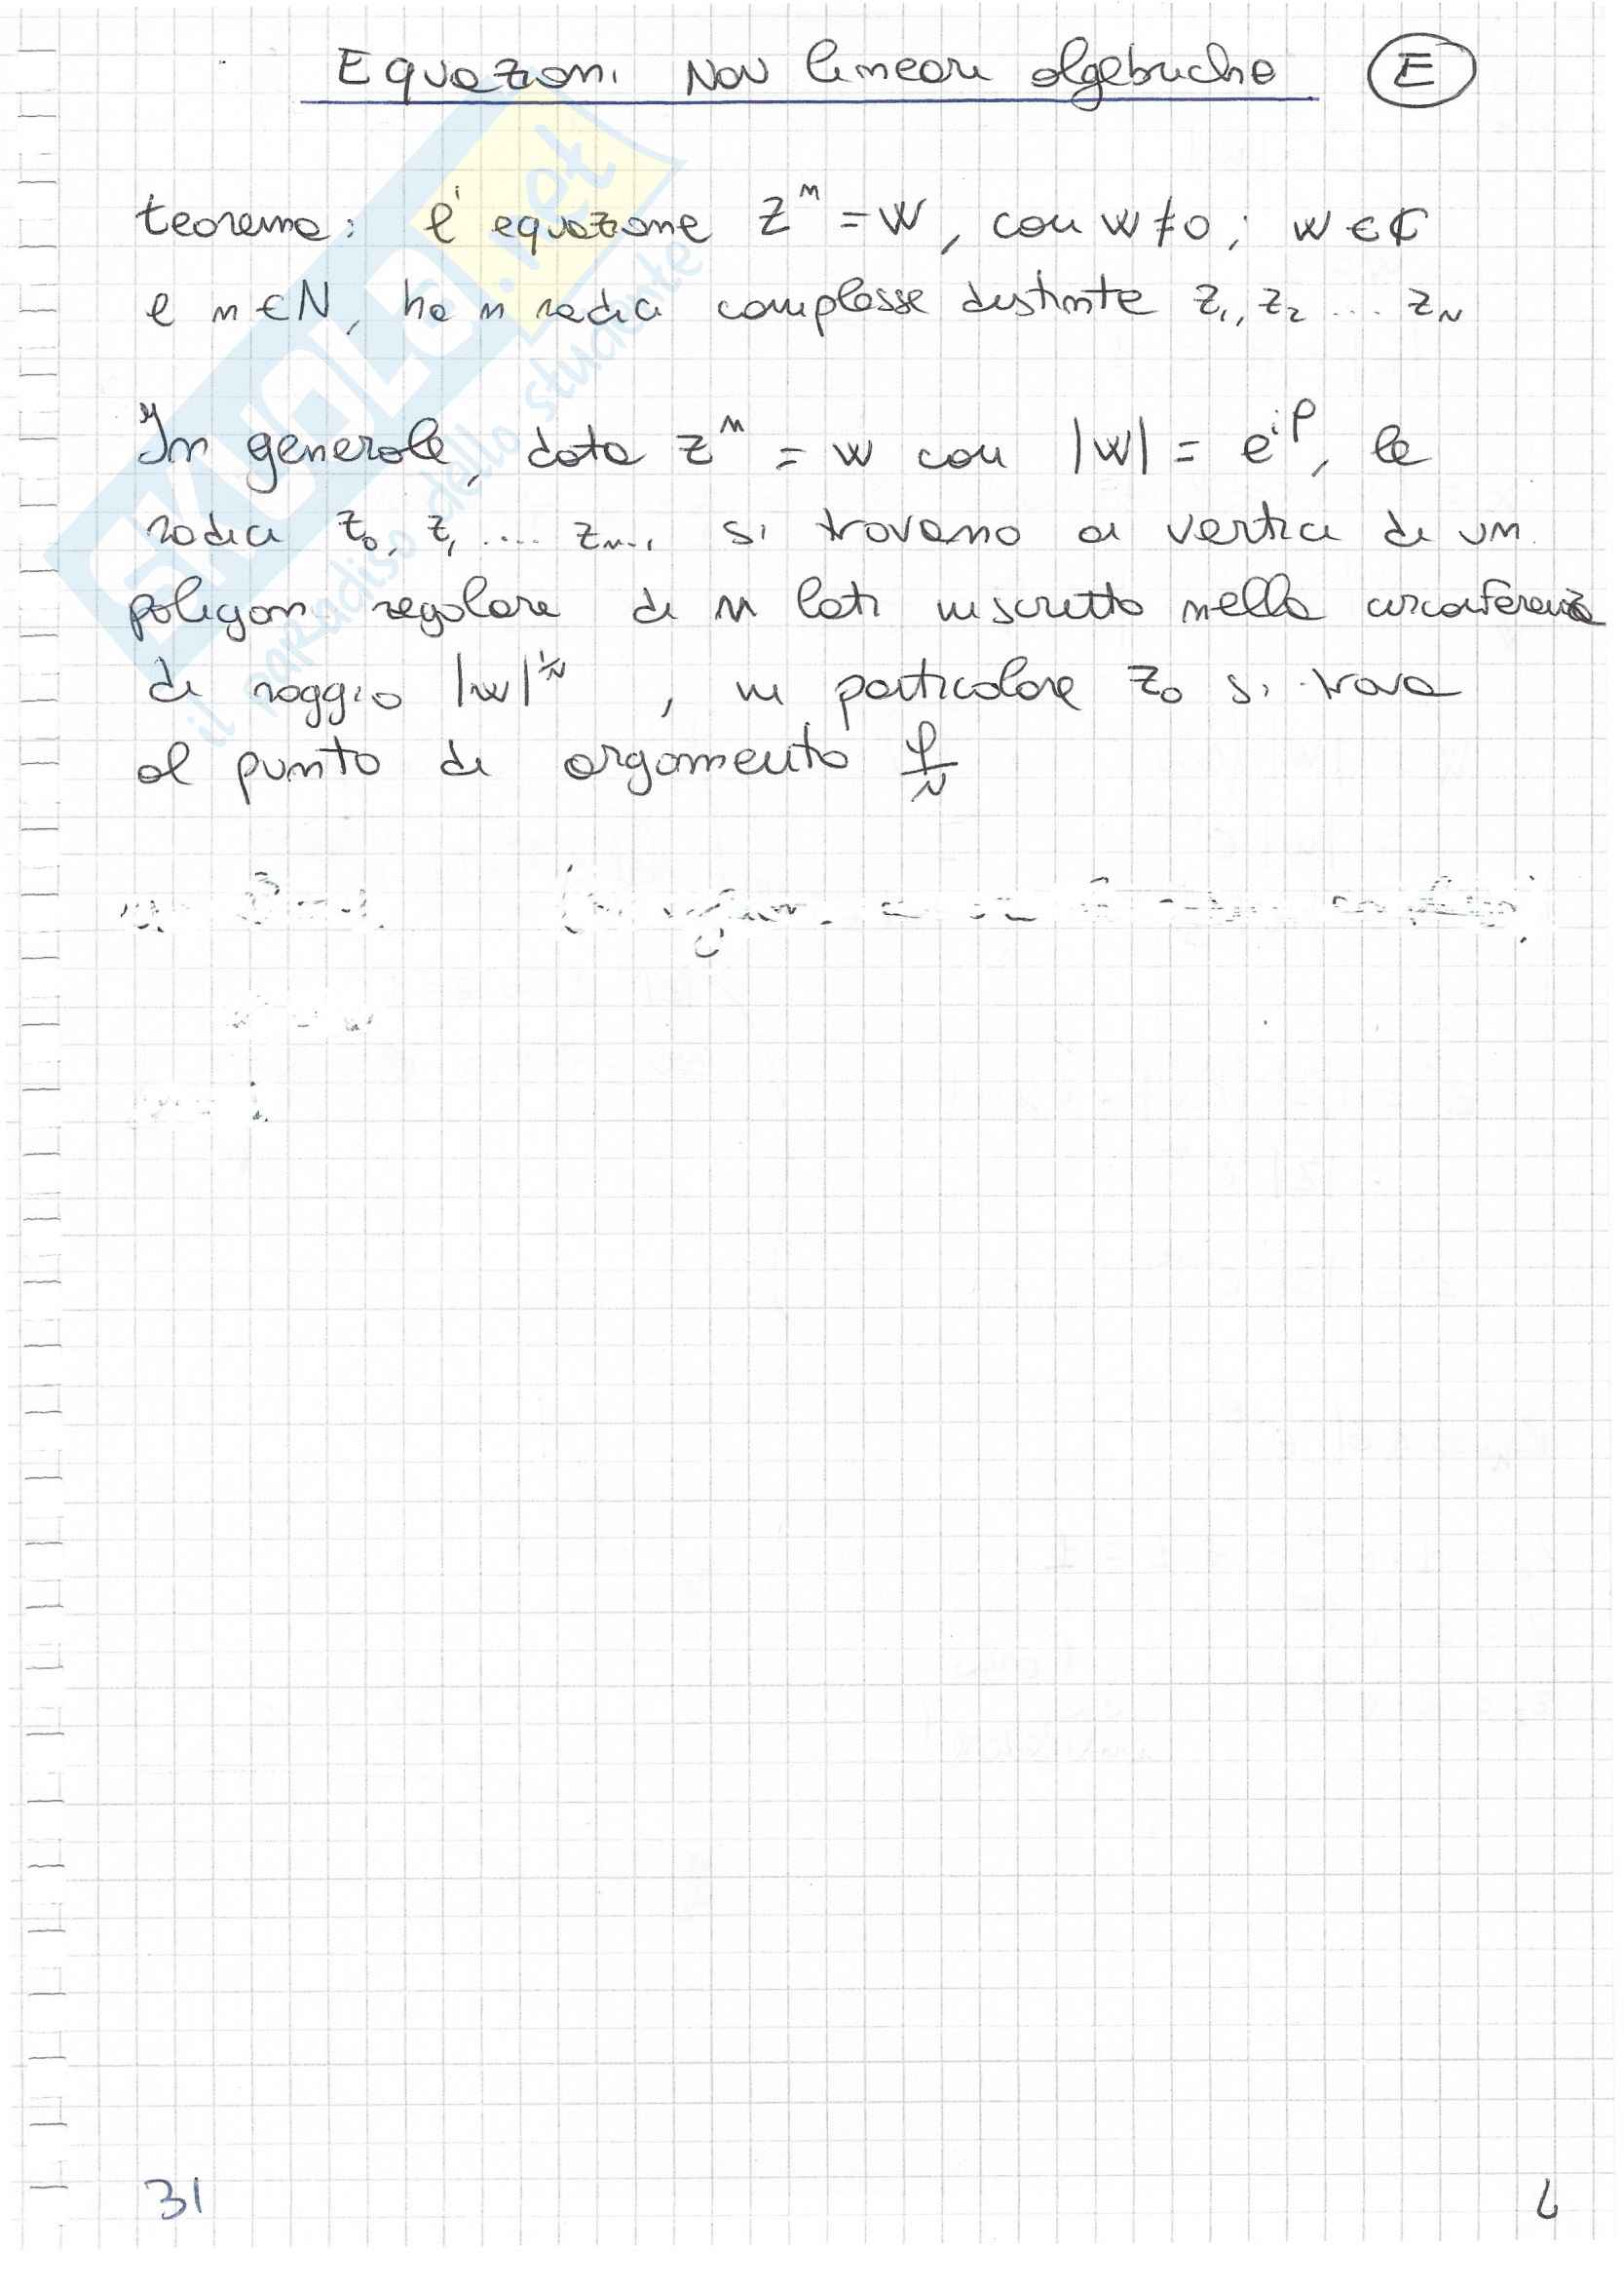 Equazioni Non lineari algebriche E
teorema: l'equazione z^n = w, con w ≠ 0; w ∈ ℂ
e n ∈ N, ha n radici complesse distinte z1, z2 ... zN
In generale, data z^n = w con |w| = e^iφ, le
radici z0, z1 .... zn-1 si trovano ai vertici di un
poligoni regolare di n lati inscritto nella circonferenza
di raggio |w|^1/N , in particolare z0 si trova
al punto di argomento φ/N
31
SKUOLA.net
il paradiso dello studente